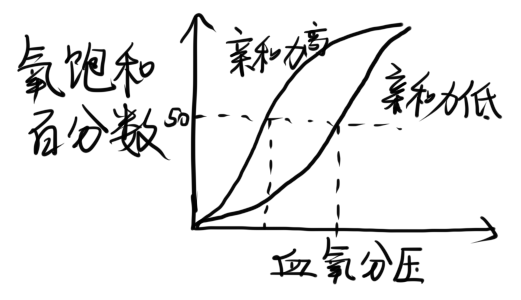 氧饱和
百分数
50
亲和力高
亲和力低
血氧分压